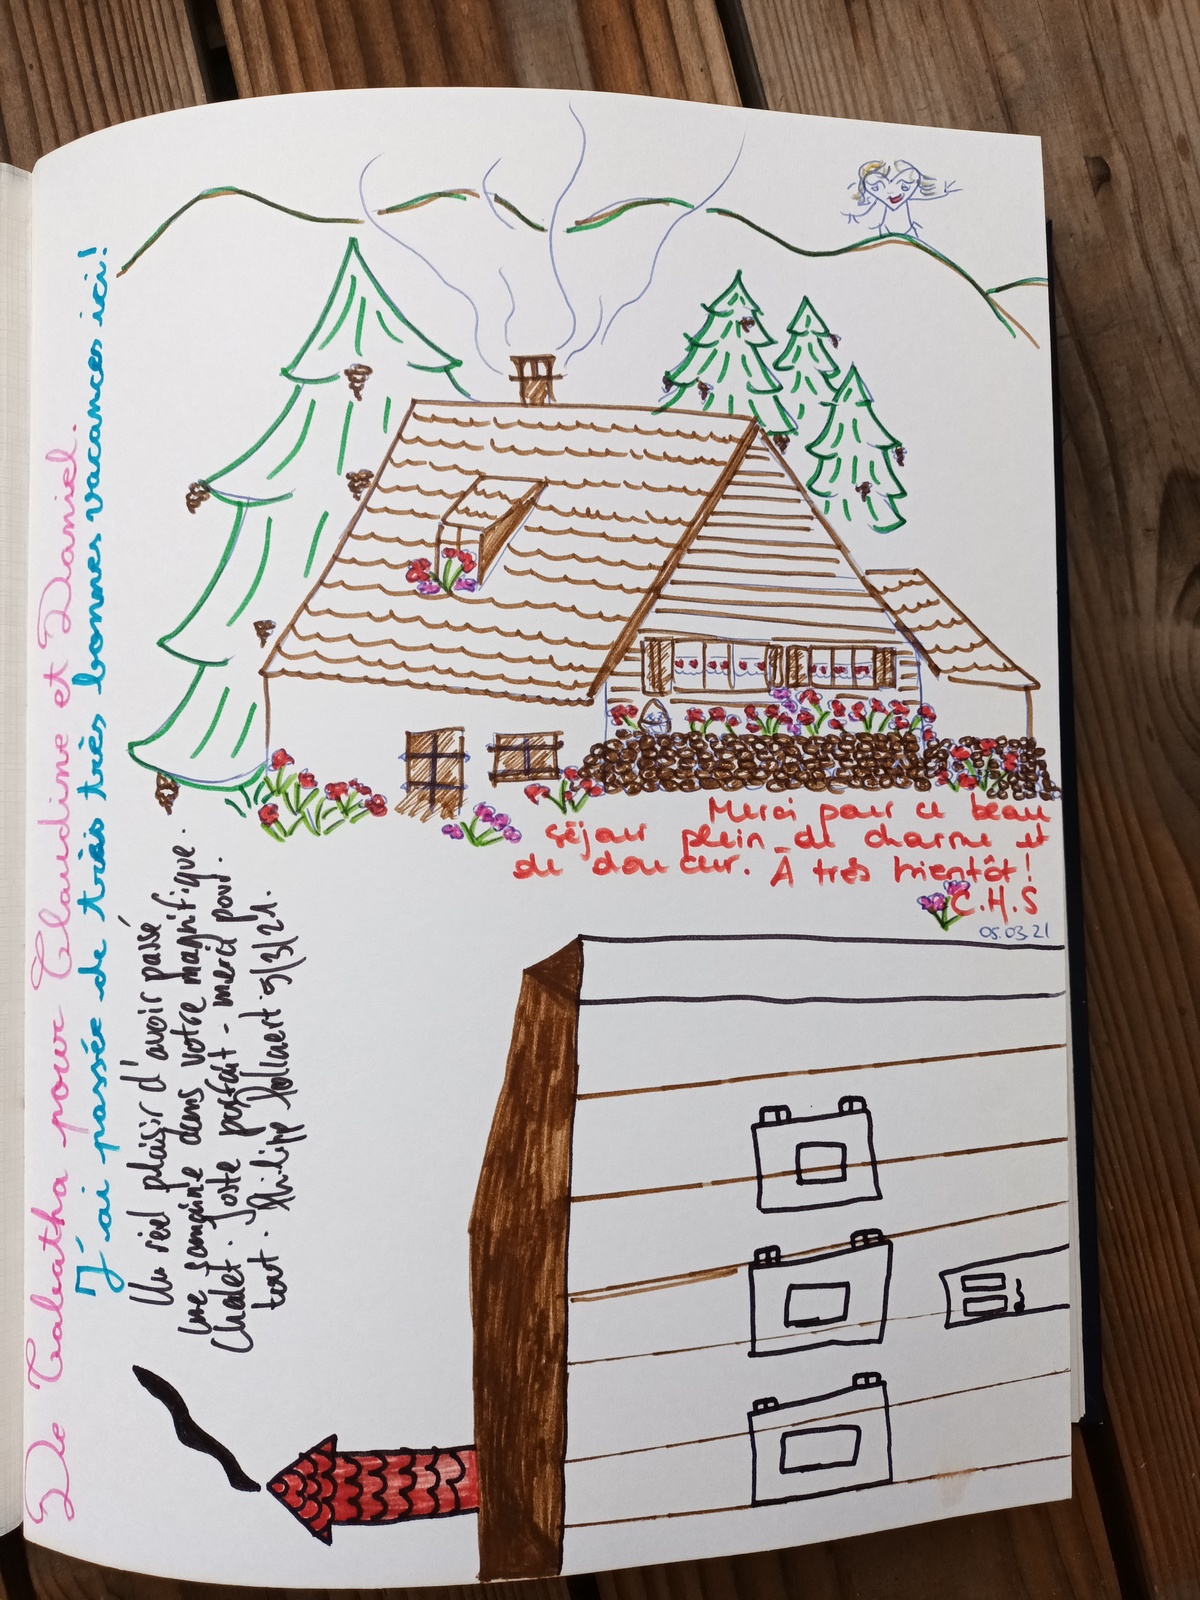 Merci pour ce beau
séjour plein de charme et
de douceur. À très bientôt!
C.H.S
05.03.21
De Tabatha pour Claudine et Daniel.
J'ai passée de très très bonnes vacances ici!
Un réel plaisir d'avoir passé
une semaine dans votre magnifique
Chalet. Juste parfait - merci pour
tout. Philipp 5/3/21.